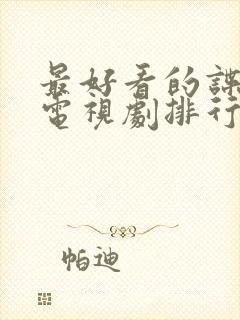 最好看的諜
電視劇排行
帕迪